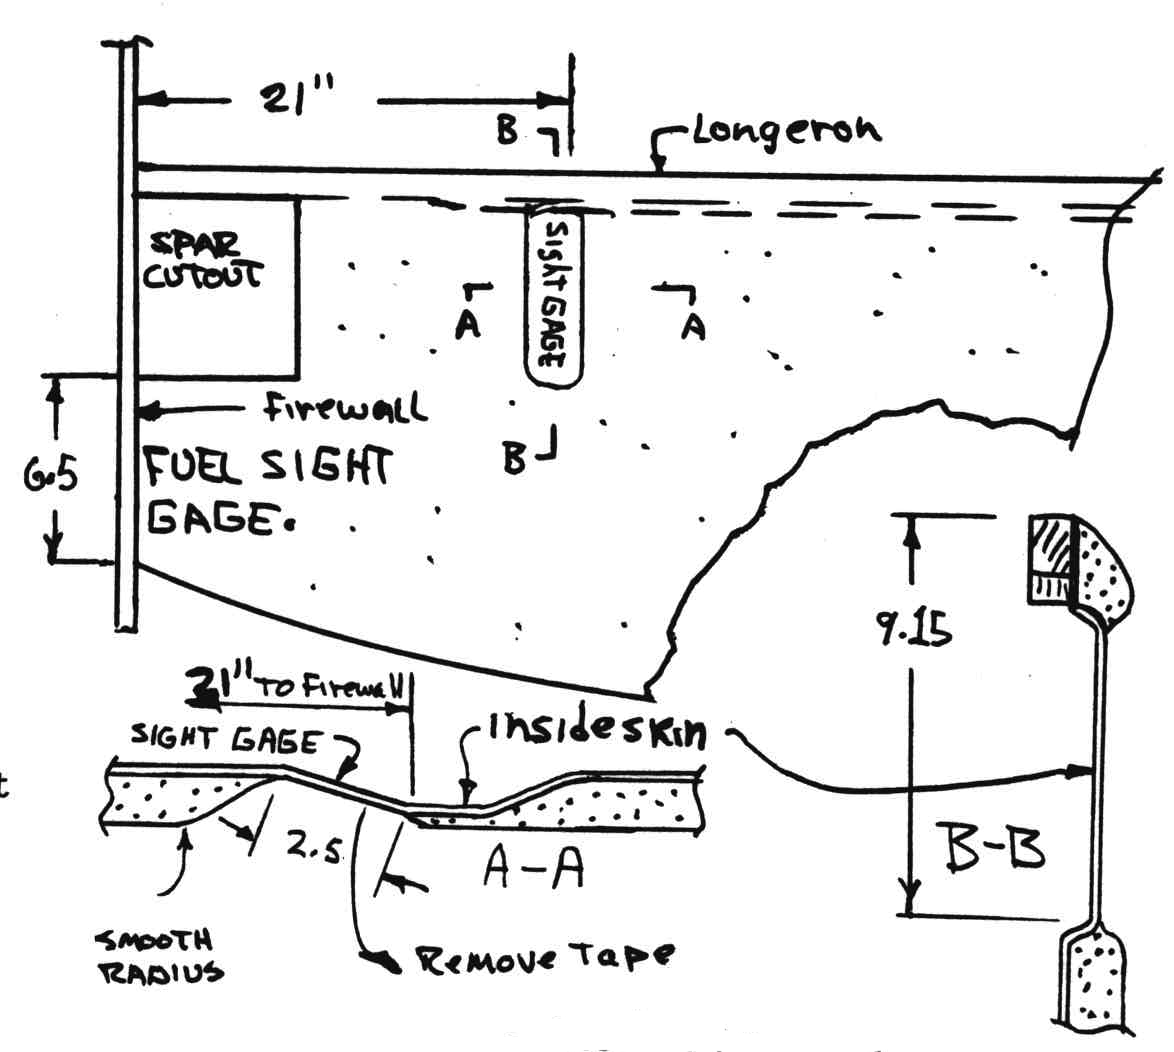 21"
B
Longeron
SPAR
CUTOUT
Sight GAGE
A
A
Firewall
6.5
B
FUEL SIGHT
GAGE.
9.15
21" TO Firewall
SIGHT GAGE
Inside skin
t
2.5
A-A
B-B
SMOOTH
RADIUS
Remove Tape